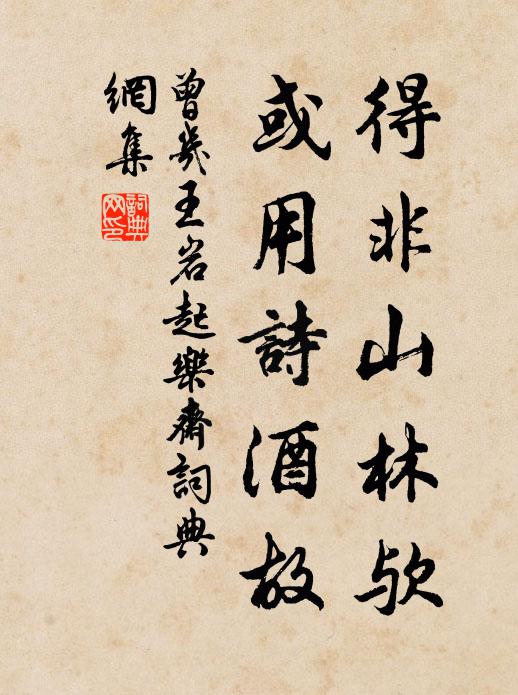 得非山林欤
或用詩酒故
曾幾王岩起樂齋詞典
網集
詞典網印